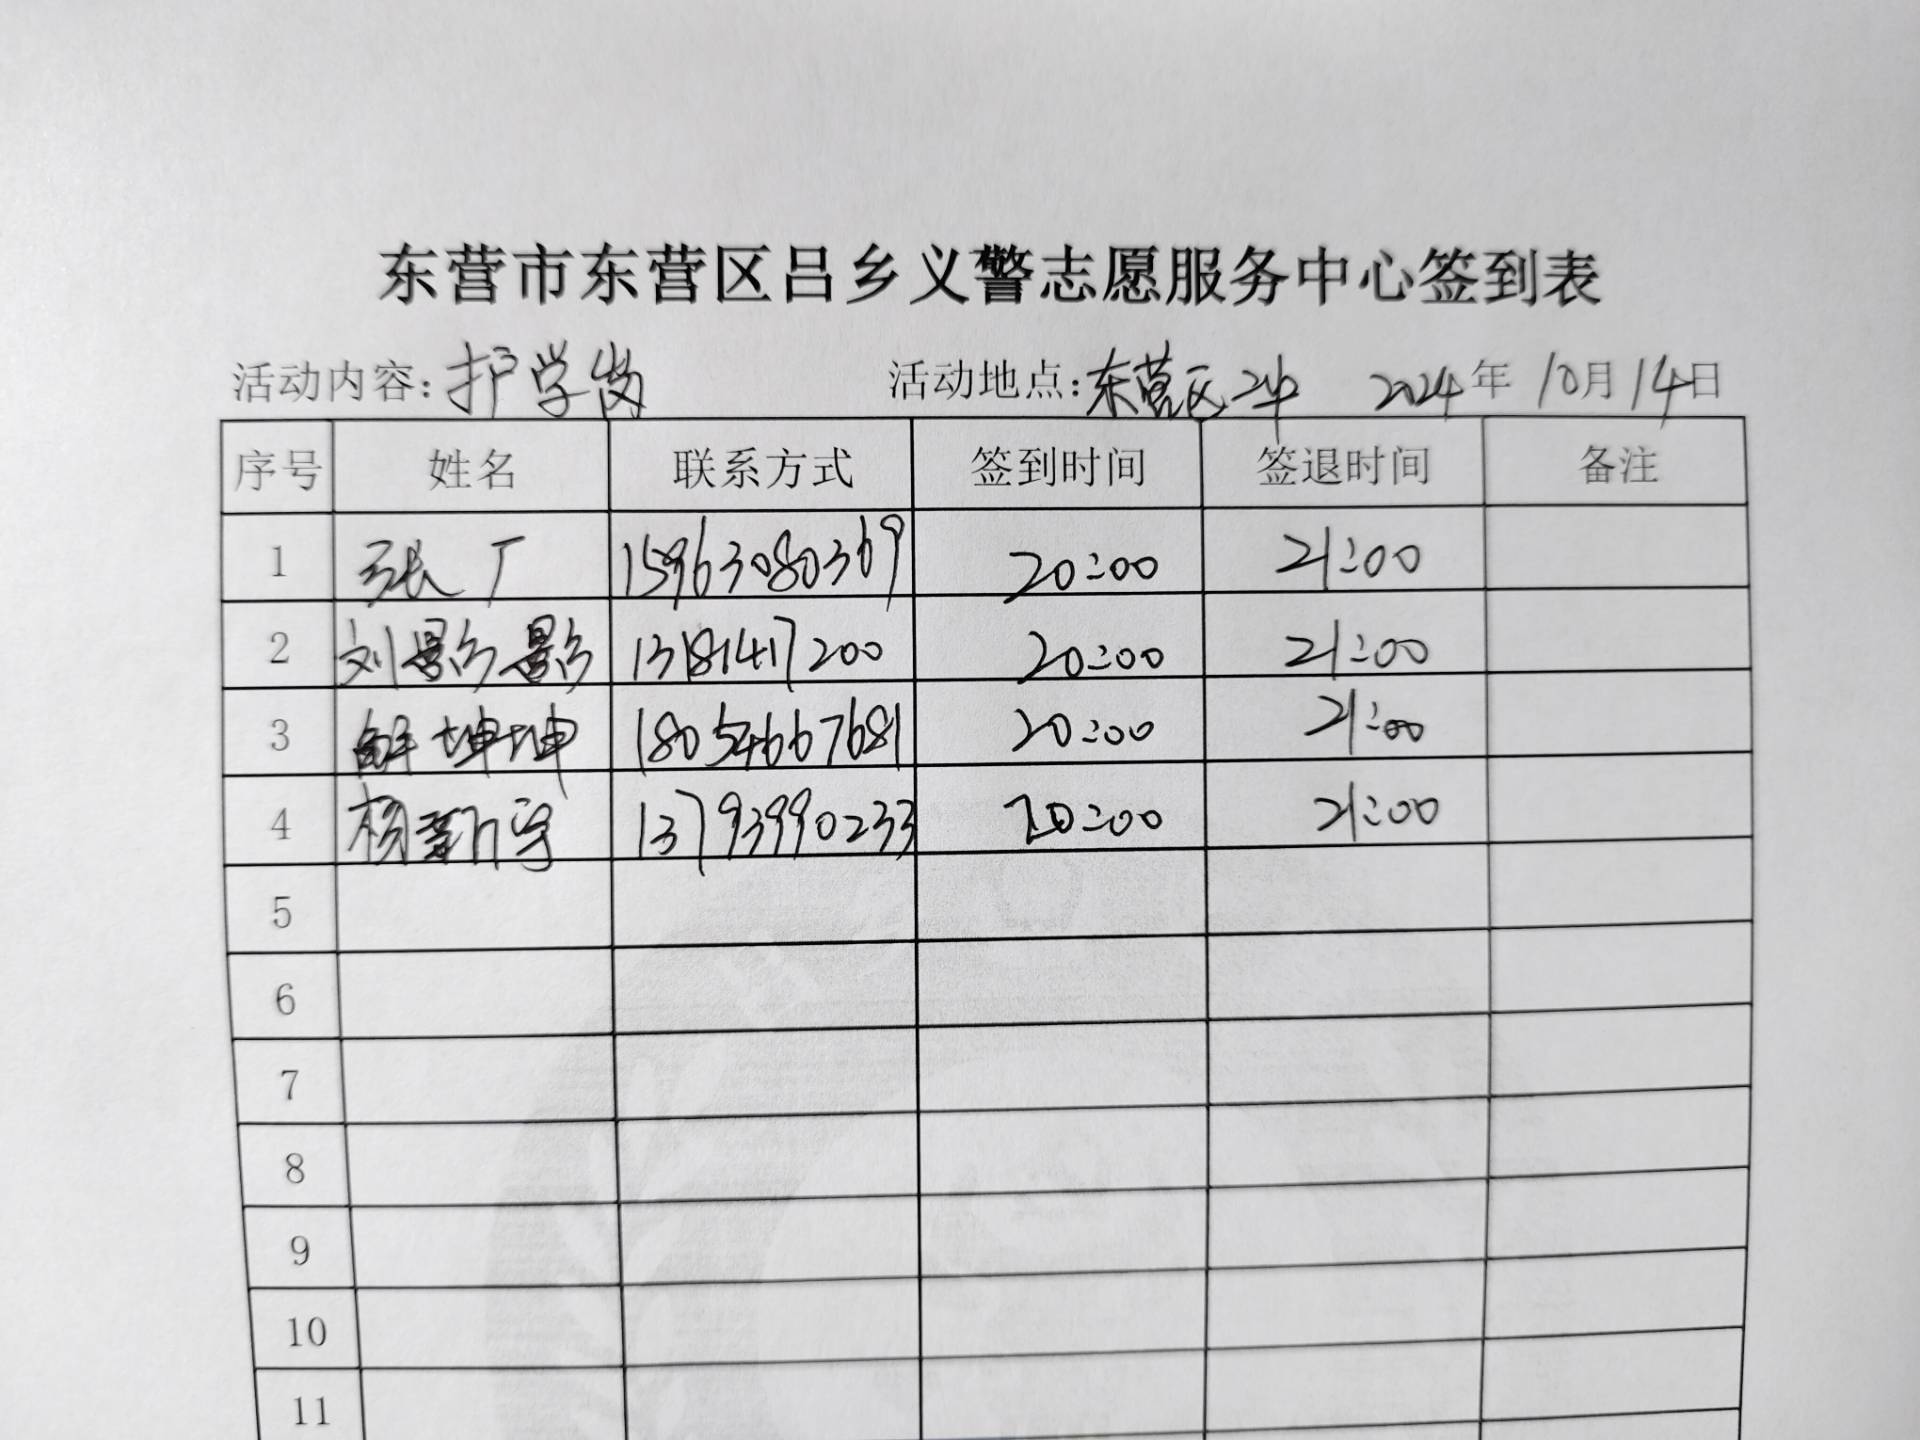 东营市东营区吕乡义警志愿服务中心签到表
活动内容：护学岗 活动地点：东营区二中 2024年10月14日
序号 姓名 联系方式 签到时间 签退时间 备注
1 张广 15963080369 20:00 21:00
2 刘影影 13181417200 20:00 21:00
3 鲜坤坤 18054667681 20:00 21:00
4 杨新宇 13793990233 20:00 21:00
5
6
7
8
9
10
11